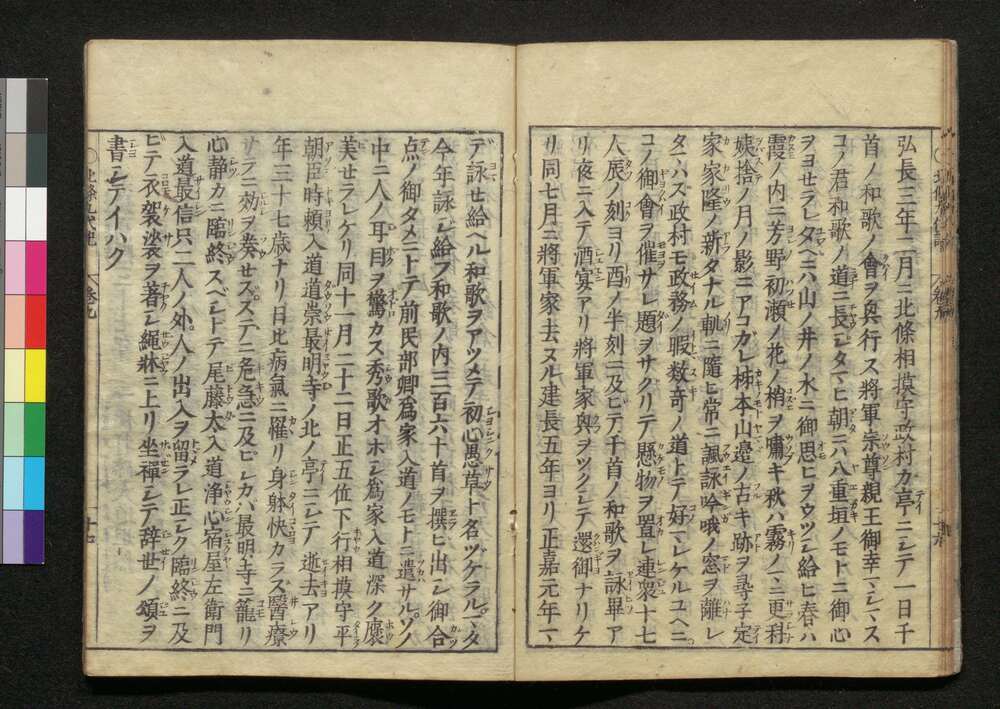 弘長三年二月ニ北條相摸守政村カ亭ニシテ一日千
首ノ和歌ノ會ヲ興行ス將軍宗尊親王御幸マシマス
コノ君和歌ノ道ニ長シタマヒ朝ニハ八重垣ノモトニ御心
ヲヨセラレタニハ山ノ井ノ水ニ御思ヒヲウツシ給ヒ春ハ
霞ノ内ニ芳野初瀬ノ花ノ梢ヲ嘯キ秋ハ霧ノマニ更科
姨捨ノ月ノ影ニアコカレ柿本山邉ノ古キ跡ヲ尋子定
家家隆ノ新タナル軌ニ隨ヒ常ニ諷詠吟哦ノ窓ヲ離レ
タマハズ政村モ政務ノ暇数奇ノ道トテ好マレケルユヘニ
コノ御會ヲ催サレ題ヲサクリテ懸物ヲ置レ連衆十七
人辰ノ刻ヨリ酉ノ半刻ニ及ビテ千首ノ和歌ヲ詠畢ア
リ夜ニ入テ酒宴アリ將軍家興ヲツクシテ還御ナリケ
リ同七月ニ將軍家去ヌル建長五年ヨリ正嘉元年マ
デ詠セ給ヘル和歌ヲアツメテ初心愚草ト名ツケラルマタ
今年詠シ給フ和歌ノ内三百六十首ヲ撰ヒ出シ御合
点ノ御タメニトテ前民部卿爲家入道ノモトニ遣サルソノ
中ニ人ノ耳目ヲ驚カス秀歌オホシ爲家入道深ク褒
美セラレケリ同十一月二十二日正五位下行相摸守平
朝臣時頼入道道崇最明寺ノ北ノ亭ニシテ逝去アリ
年三十七歳ナリ日比病氣ニ罹リ身躰快カラズ醫療
サラニ効ヲ奏セスステニ危急ニ及ビシカバ最明寺ニ籠リ
心静カニ臨終スベシトテ尾藤太入道浄心宿屋左衛門
入道最信只二人ノ外人ノ出入ヲ留ラレ正シク臨終ニ及
ビテ衣袈裟ヲ著シ縄牀ニ上リ坐禪シテ辞世ノ頌ヲ
書シテイハク